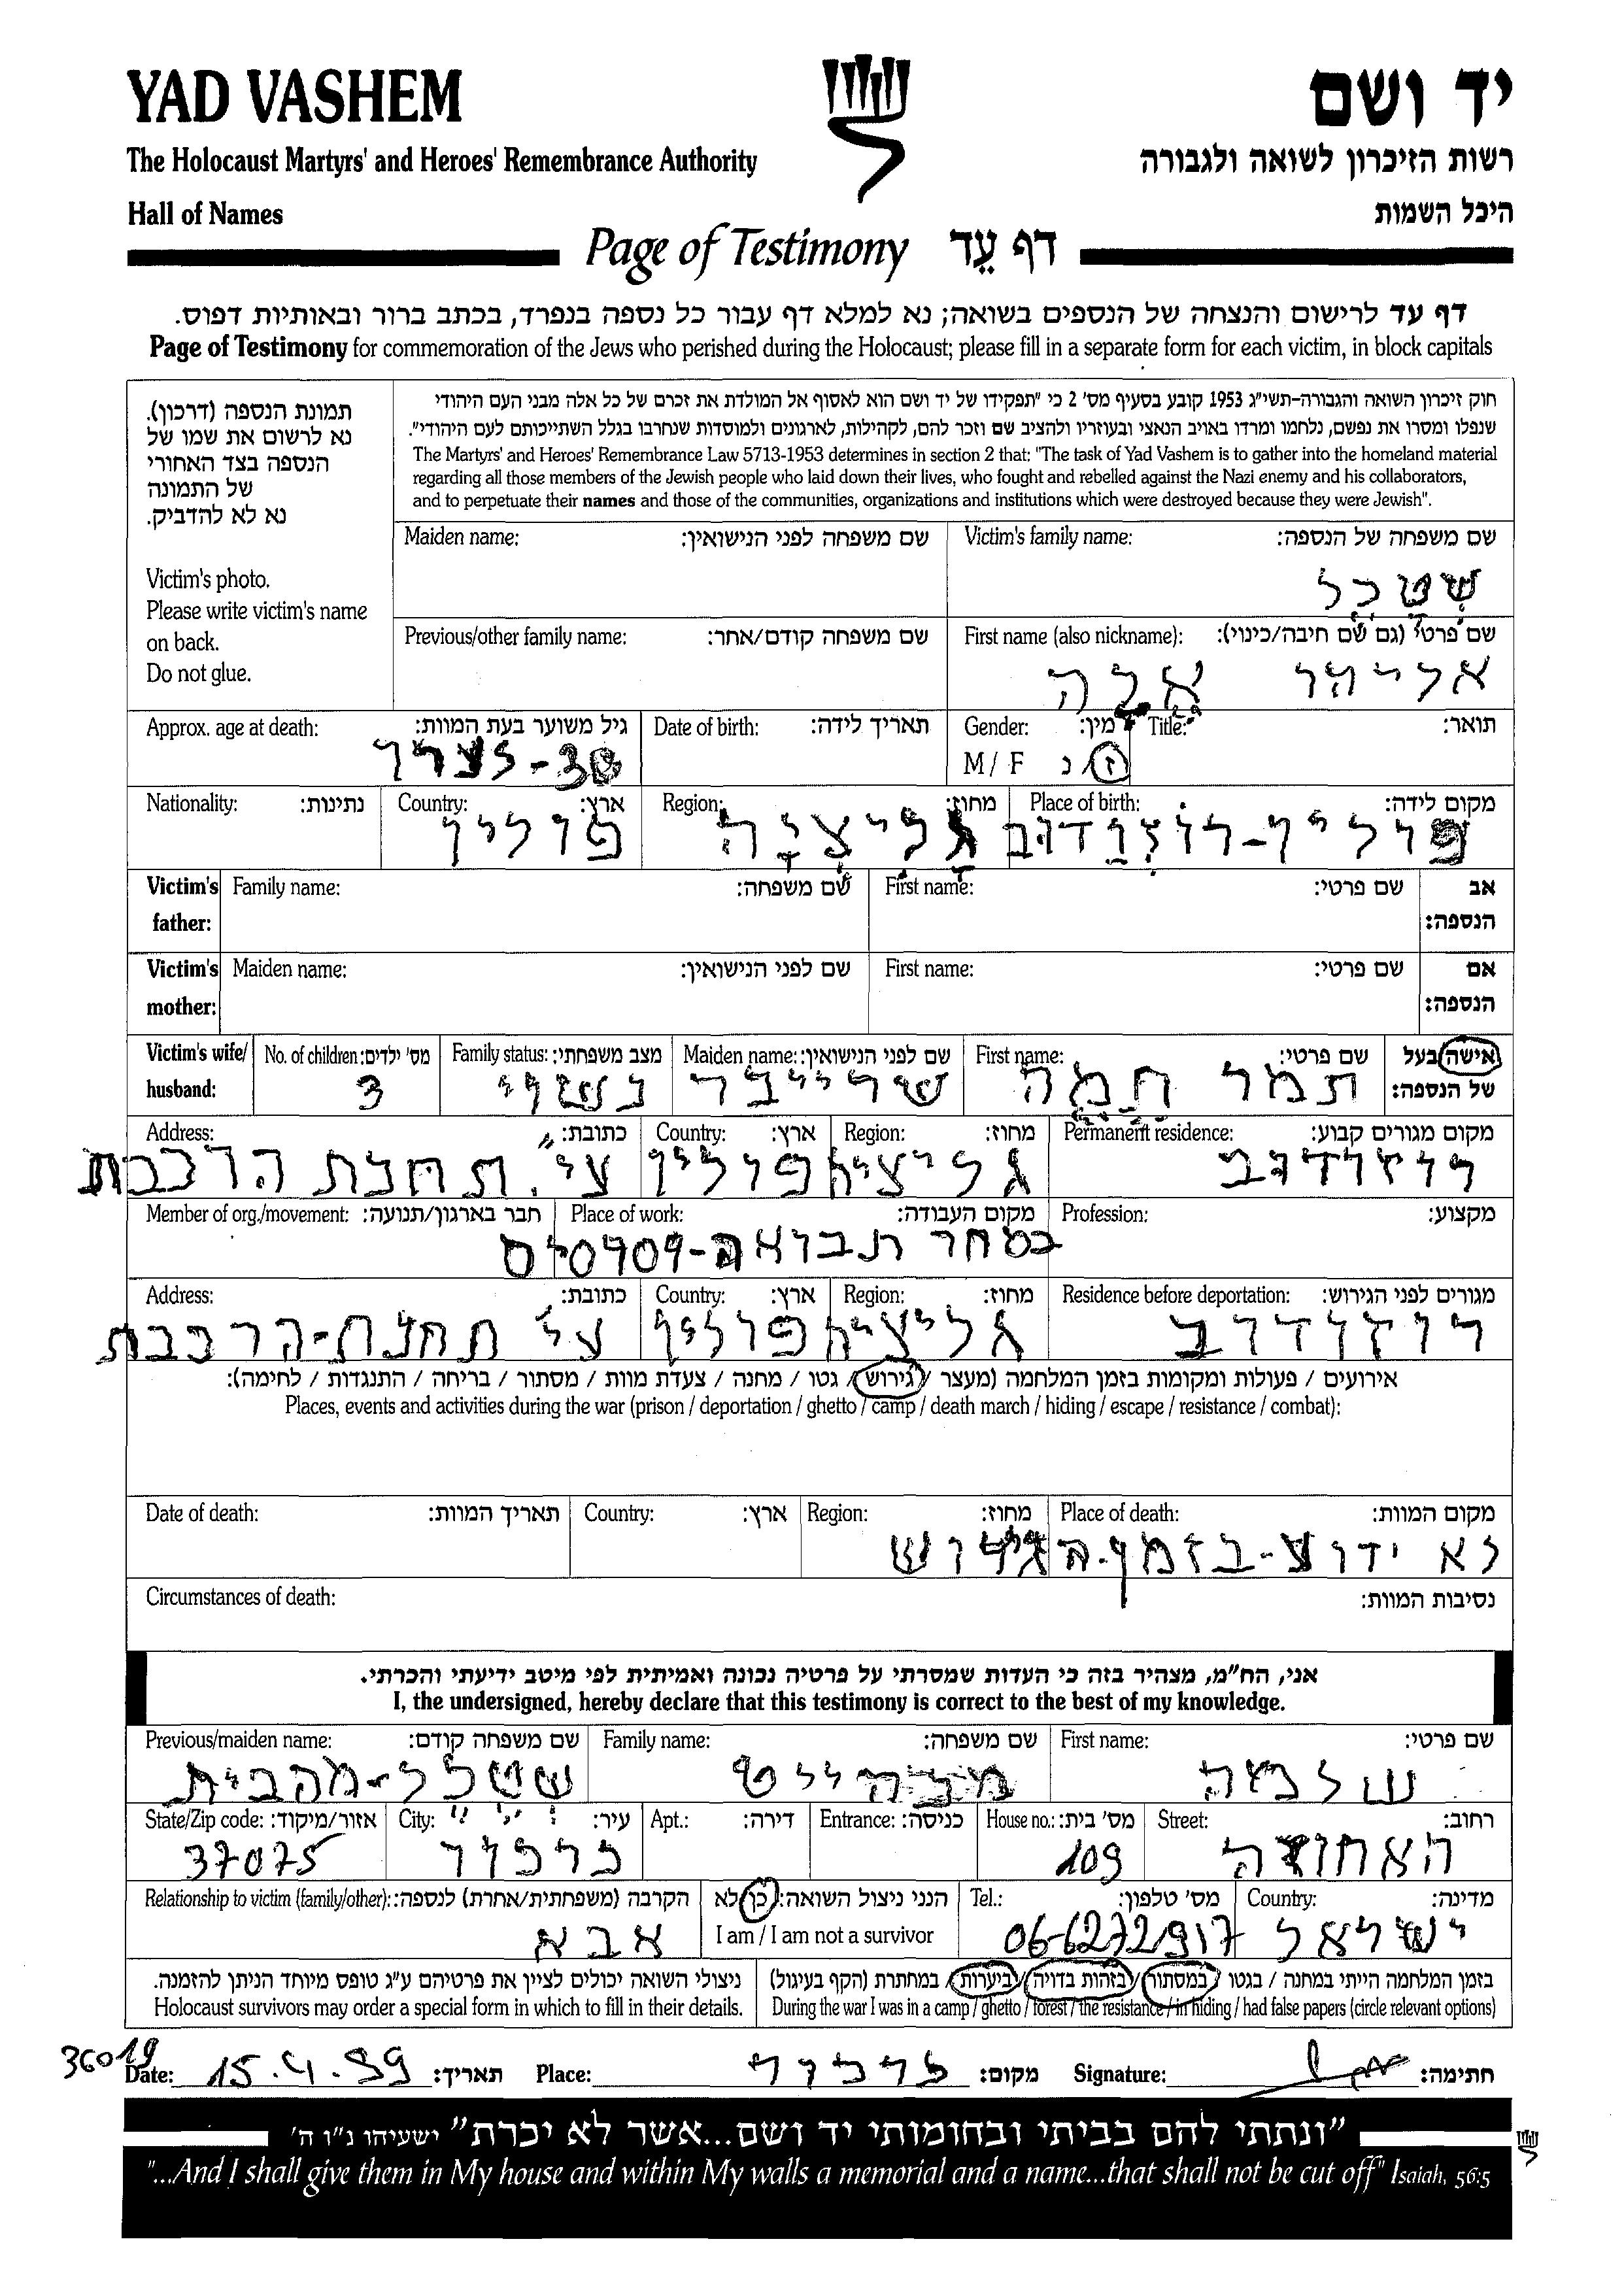 YAD VASHEM
יד ושם
The Holocaust Martyrs' and Heroes' Remembrance Authority
רשות הזיכרון לשואה ולגבורה
Hall of Names
היכל השמות
Page of Testimony דף עֵד
דף עד לרישום והנצחה של הנספים בשואה; נא למלא דף עבור כל נספה בנפרד, בכתב ברור ובאותיות דפוס.
Page of Testimony for commemoration of the Jews who perished during the Holocaust; please fill in a separate form for each victim, in block capitals
תמונת הנספה (דרכון).
נא לרשום את שמו של
הנספה בצד האחורי
של התמונה
נא לא להדביק.
Victim's photo.
Please write victim's name
on back.
Do not glue.
חוק זיכרון השואה והגבורה-תשי"ג 1953 קובע בסעיף מס' 2 כי "תפקידו של יד ושם הוא לאסוף אל המולדת את זכרם של כל אלה מבני העם היהודי
שנפלו ומסרו את נפשם, נלחמו ומרדו באויב הנאצי ובעוזריו ולהציב שם וזכר להם, לקהילות, לארגונים ולמוסדות שנחרבו בגלל השתייכותם לעם היהודי".
The Martyrs' and Heroes' Remembrance Law 5713-1953 determines in section 2 that: "The task of Yad Vashem is to gather into the homeland material
regarding all those members of the Jewish people who laid down their lives, who fought and rebelled against the Nazi enemy and his collaborators,
and to perpetuate their names and those of the communities, organizations and institutions which were destroyed because they were Jewish".
שם משפחה של הנספה: Victim's family name: שם משפחה לפני הנישואין: Maiden name:
שטכל
שם פרטי (גם שם חיבה/כינוי): First name (also nickname): שם משפחה קודם/אחר: Previous/other family name:
אליהו אלה
תואר: Title: מין: Gender: תאריך לידה: Date of birth: גיל משוער בעת המוות: Approx. age at death:
ז נ M / F 38-לערך
מקום לידה: Place of birth: מחוז: Region: ארץ: Country: נתינות: Nationality:
פולין-רוזודוב גליציה פולין
אב הנספה: שם פרטי: First name: שם משפחה: Family name: Victim's father:
אם הנספה: שם פרטי: First name: שם לפני הנישואין: Maiden name: Victim's mother:
אישה/בעל של הנספה: שם פרטי: First name: שם לפני הנישואין: Maiden name: מצב משפחתי: Family status: מס' ילדים: No. of children: Victim's wife/ husband:
תמר שרייבר נשוי 3
מקום מגורים קבוע: Permanent residence: מחוז: Region: ארץ: Country: כתובת: Address:
רוזודוב גליציה פולין ע"י תחנת הרכבת
מקצוע: Profession: מקום העבודה: Place of work: חבר בארגון/תנועה: Member of org./movement:
תבואה-
מגורים לפני הגירוש: Residence before deportation: מחוז: Region: ארץ: Country: כתובת: Address:
רוזודוב גליציה פולין ע"י תחנת-הרכבת
אירועים / פעולות ומקומות בזמן המלחמה (מעצר / גירוש / גטו / מחנה / צעדת מוות / מסתור / בריחה / התנגדות / לחימה):
Places, events and activities during the war (prison / deportation / ghetto / camp / death march / hiding / escape / resistance / combat):
מקום המוות: Place of death: מחוז: Region: ארץ: Country: תאריך המוות: Date of death:
לא ידוע-בזמן-הגירוש
נסיבות המוות: Circumstances of death:
אני, הח"מ, מצהיר בזה כי העדות שמסרתי על פרטיה נכונה ואמיתית לפי מיטב ידיעתי והכרתי.
I, the undersigned, hereby declare that this testimony is correct to the best of my knowledge.
שם פרטי: First name: שם משפחה: Family name: שם משפחה קודם: Previous/maiden name:
שטכל-מהבית
רחוב: Street: מס' בית: House no.: כניסה: Entrance: דירה: Apt.: עיר: City: אזור/מיקוד: State/Zip code:
האחוזה 109 כרכור 37075
מדינה: Country: מס' טלפון: Tel.: הנני ניצול השואה: כן לא הקרבה (משפחתית/אחרת) לנספה: Relationship to victim (family/other):
ישראל 06-6272917 I am / I am not a survivor אבא
בזמן המלחמה הייתי במחנה / בגטו / במסתור / בזהות בדויה / ביערות / במחתרת (הקף בעיגול)
During the war I was in a camp / ghetto / forest / the resistance / in hiding / had false papers (circle relevant options)
ניצולי השואה יכולים לציין את פרטיהם ע"ג טופס מיוחד הניתן להזמנה.
Holocaust survivors may order a special form in which to fill in their details.
36019
חתימה: Signature: מקום: כרכור Place: תאריך: 15.4.99 Date:
"ונתתי להם בביתי ובחומותי יד ושם...אשר לא יכרת" ישעיהו נ"ו ה'
"...And I shall give them in My house and within My walls a memorial and a name...that shall not be cut off" Isaiah, 56:5